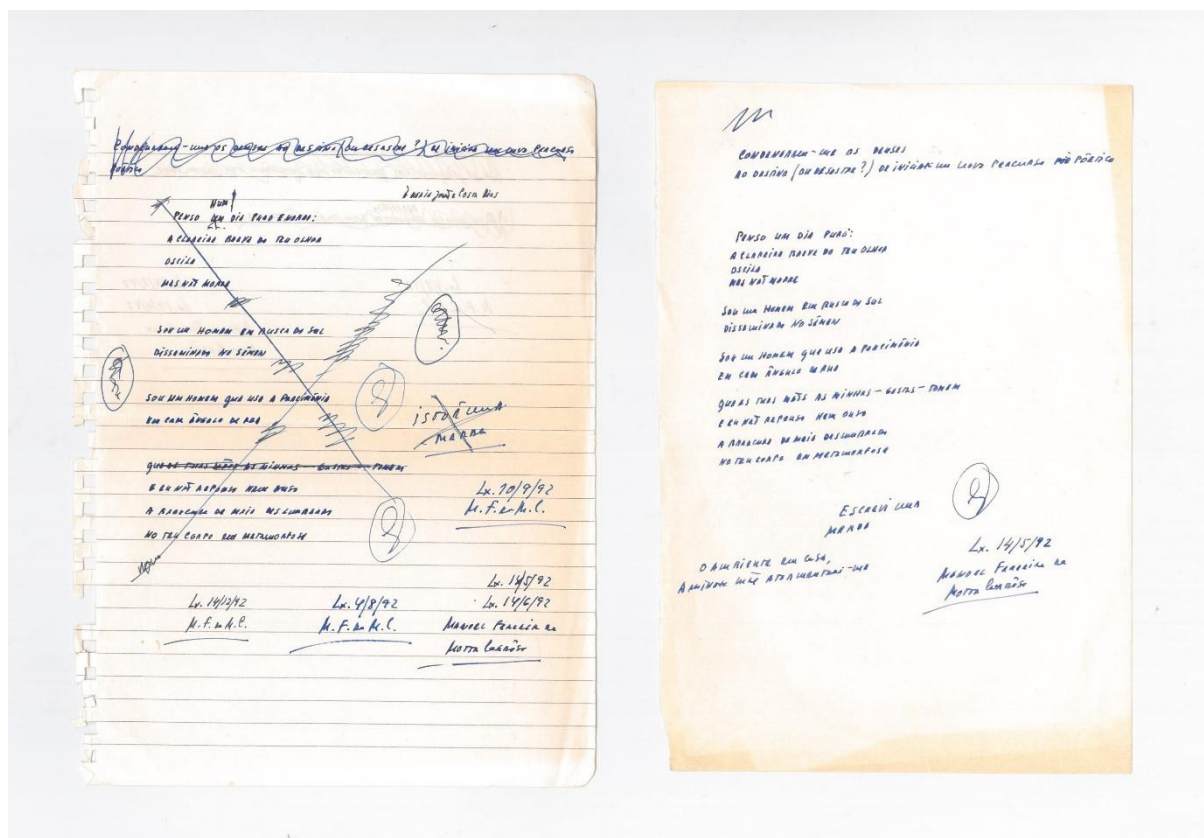 CONDENARAM-ME OS DEUSES AO DESTINO (OU DESASTRE?) DE INICIAR UM NOVO PERCURSO
POÉTICO
À MARIA JOÃO COSTA DIAS
NUM!
PENSO UM DIA PURO E MORDO:
A CLAREIRA BREVE DO TEU OLHAR
OSCILA
MAS NÃO MORRE
SOU UM HOMEM EM BUSCA DE SUL
DISSEMINADO NO SÉMEN
SOU UM HOMEM QUE USA A PARCIMÓNIA
EM CADA ÂNGULO DE
ISTO É UMA
MERDA
QUE AS TUAS MÃOS AS MINHAS - GASTAS - TOMEM
E EU NÃO REPOUSO NEM OUSO
A DE MAIO DESLUMBRADO
NO TEU CORPO EM METAMORFOSE
Lx. 10/9/92
M.F. da M.C.
Lx. 15/5/92
Lx. 14/6/92
MANUEL FERREIRA DA
MOTTA CARDÔSO
Lx. 4/8/92
M.F. da M.C.
Lx. 14/12/92
M.F. da M.C.
CONDENARAM-ME OS DEUSES
AO DESTINO (OU DESASTRE?) DE INICIAR UM NOVO PERCURSO POÉTICO
PENSO UM DIA PURO:
A CLAREIRA BREVE DO TEU OLHAR
OSCILA
MAS NÃO MORRE
SOU UM HOMEM EM BUSCA DE SUL
DISSEMINADO NO SÉMEN
SOU UM HOMEM QUE USA A PARCIMÓNIA
EM CADA ÂNGULO
QUE AS TUAS MÃOS AS MINHAS - GASTAS - TOMEM
E EU NÃO REPOUSO NEM OUSO
A DE MAIO DESLUMBRADO
NO TEU CORPO EM METAMORFOSE
ESCREVI UMA
MERDA
O AMBIENTE EM CASA,
A MINHA MÃE ATORMENTAM-ME
Lx. 14/5/92
MANUEL FERREIRA DA
MOTTA CARDÔSO